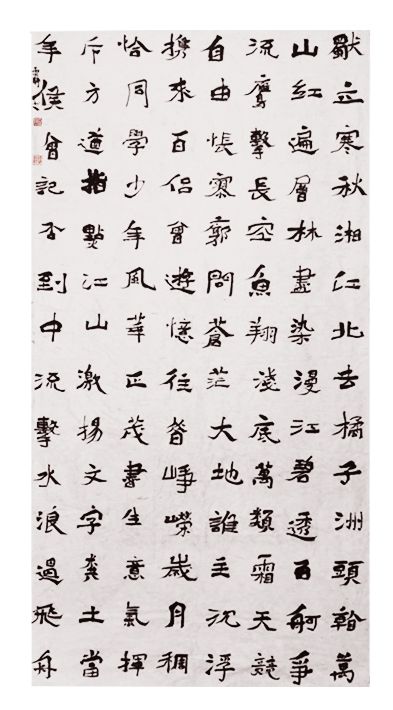 獨立寒秋湘江北去橘子洲頭看萬
山紅遍層林盡染漫江碧透百舸爭
流鷹擊長空魚翔淺底萬類霜天競
自由悵寥廓問蒼茫大地誰主沉浮
携來百侶曾遊憶往昔崢嶸歲月稠
恰同學少年風華正茂書生意氣揮
斥方遒指點江山激揚文字糞土當
年侯曾記否到中流擊水浪遏飛舟